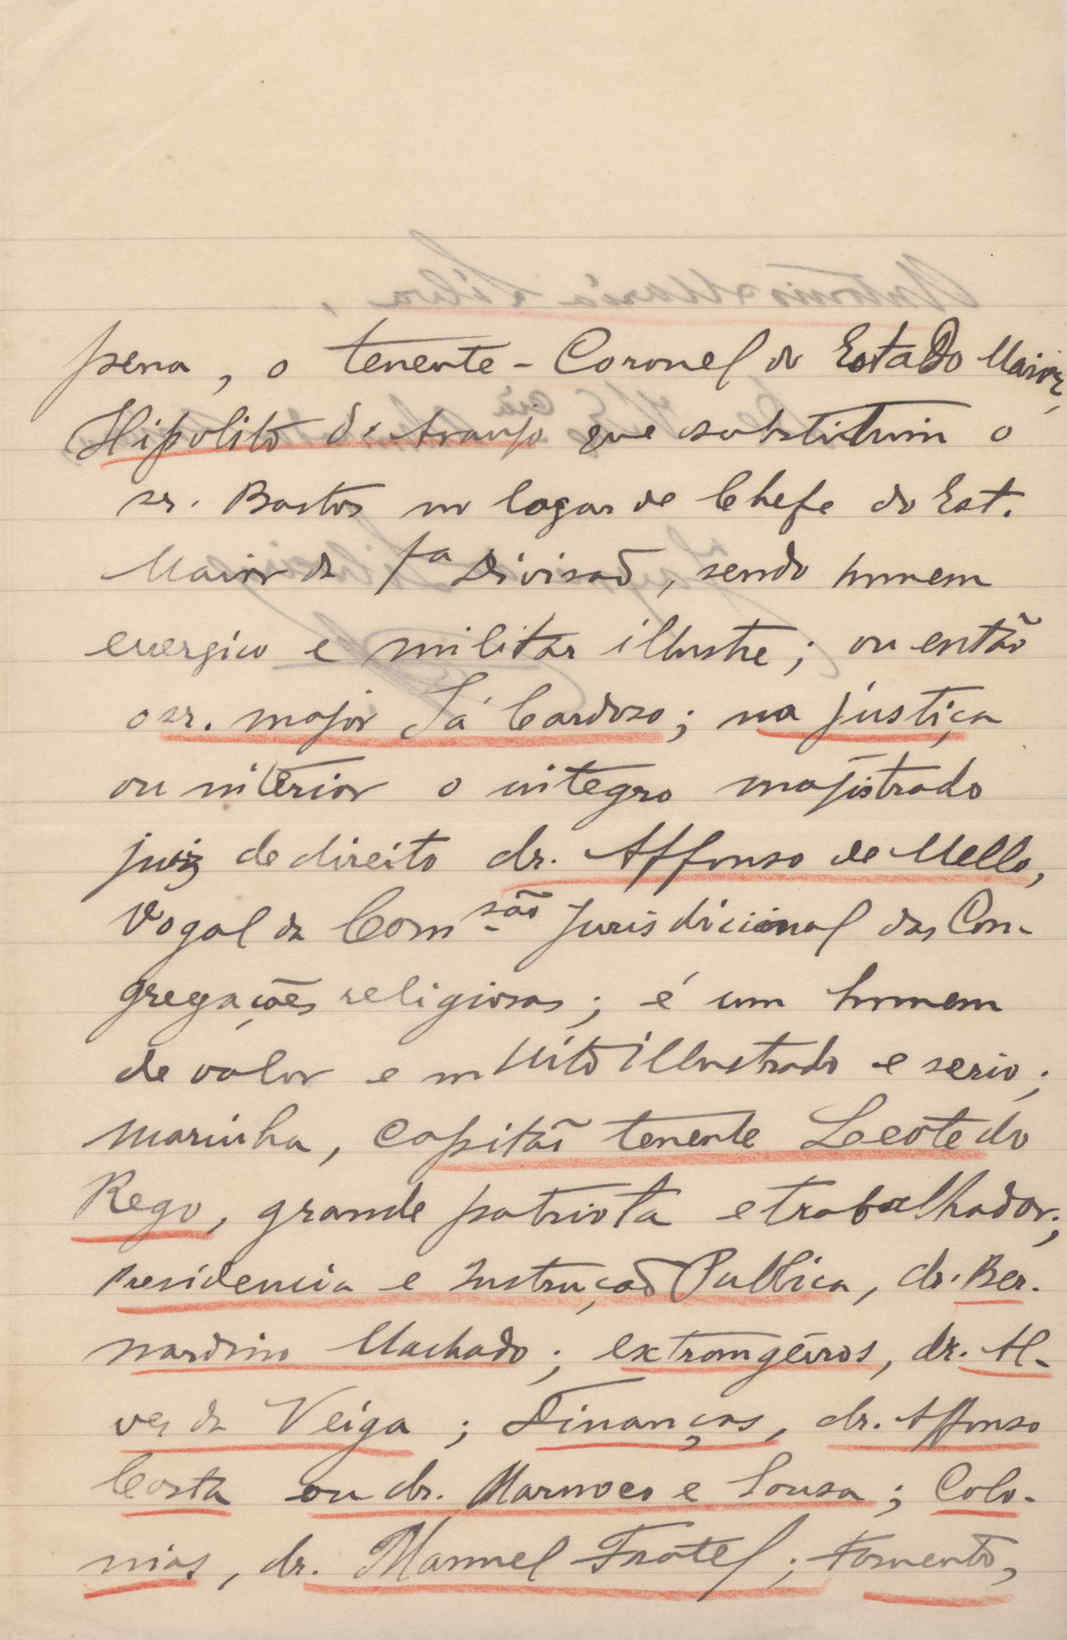 pena, o tenente-Coronel do Estado Maior,
Hipolito de Araujo que substituiu o
sr. Bastos no logar de Chefe do Est.
Maior da 1a Divisaõ, sendo homem
energico e militar illustre; ou então
o sr. major Sá Cardoso; na justiça
ou interior o integro magistrado
juiz de direito dr. Affonso de Mello,
Vogal da Comsão Jurisdicional das Con-
gregações religiosas; é um homem
de valor e muito illustrado e serio;
marinha, capitaõ tenente Leote do
Rego, grande patriota e trabalhador;
Presidencia e Instruçaõ Publica, dr. Ber-
nardino Machado; extrangeiros, dr. Al-
ves da Veiga; Finanças, dr. Affonso
Costa ou dr. Marnoco e Sousa; Colo-
nias, dr. Manuel Fratel; Fomento,
Antonio Maria Silva,